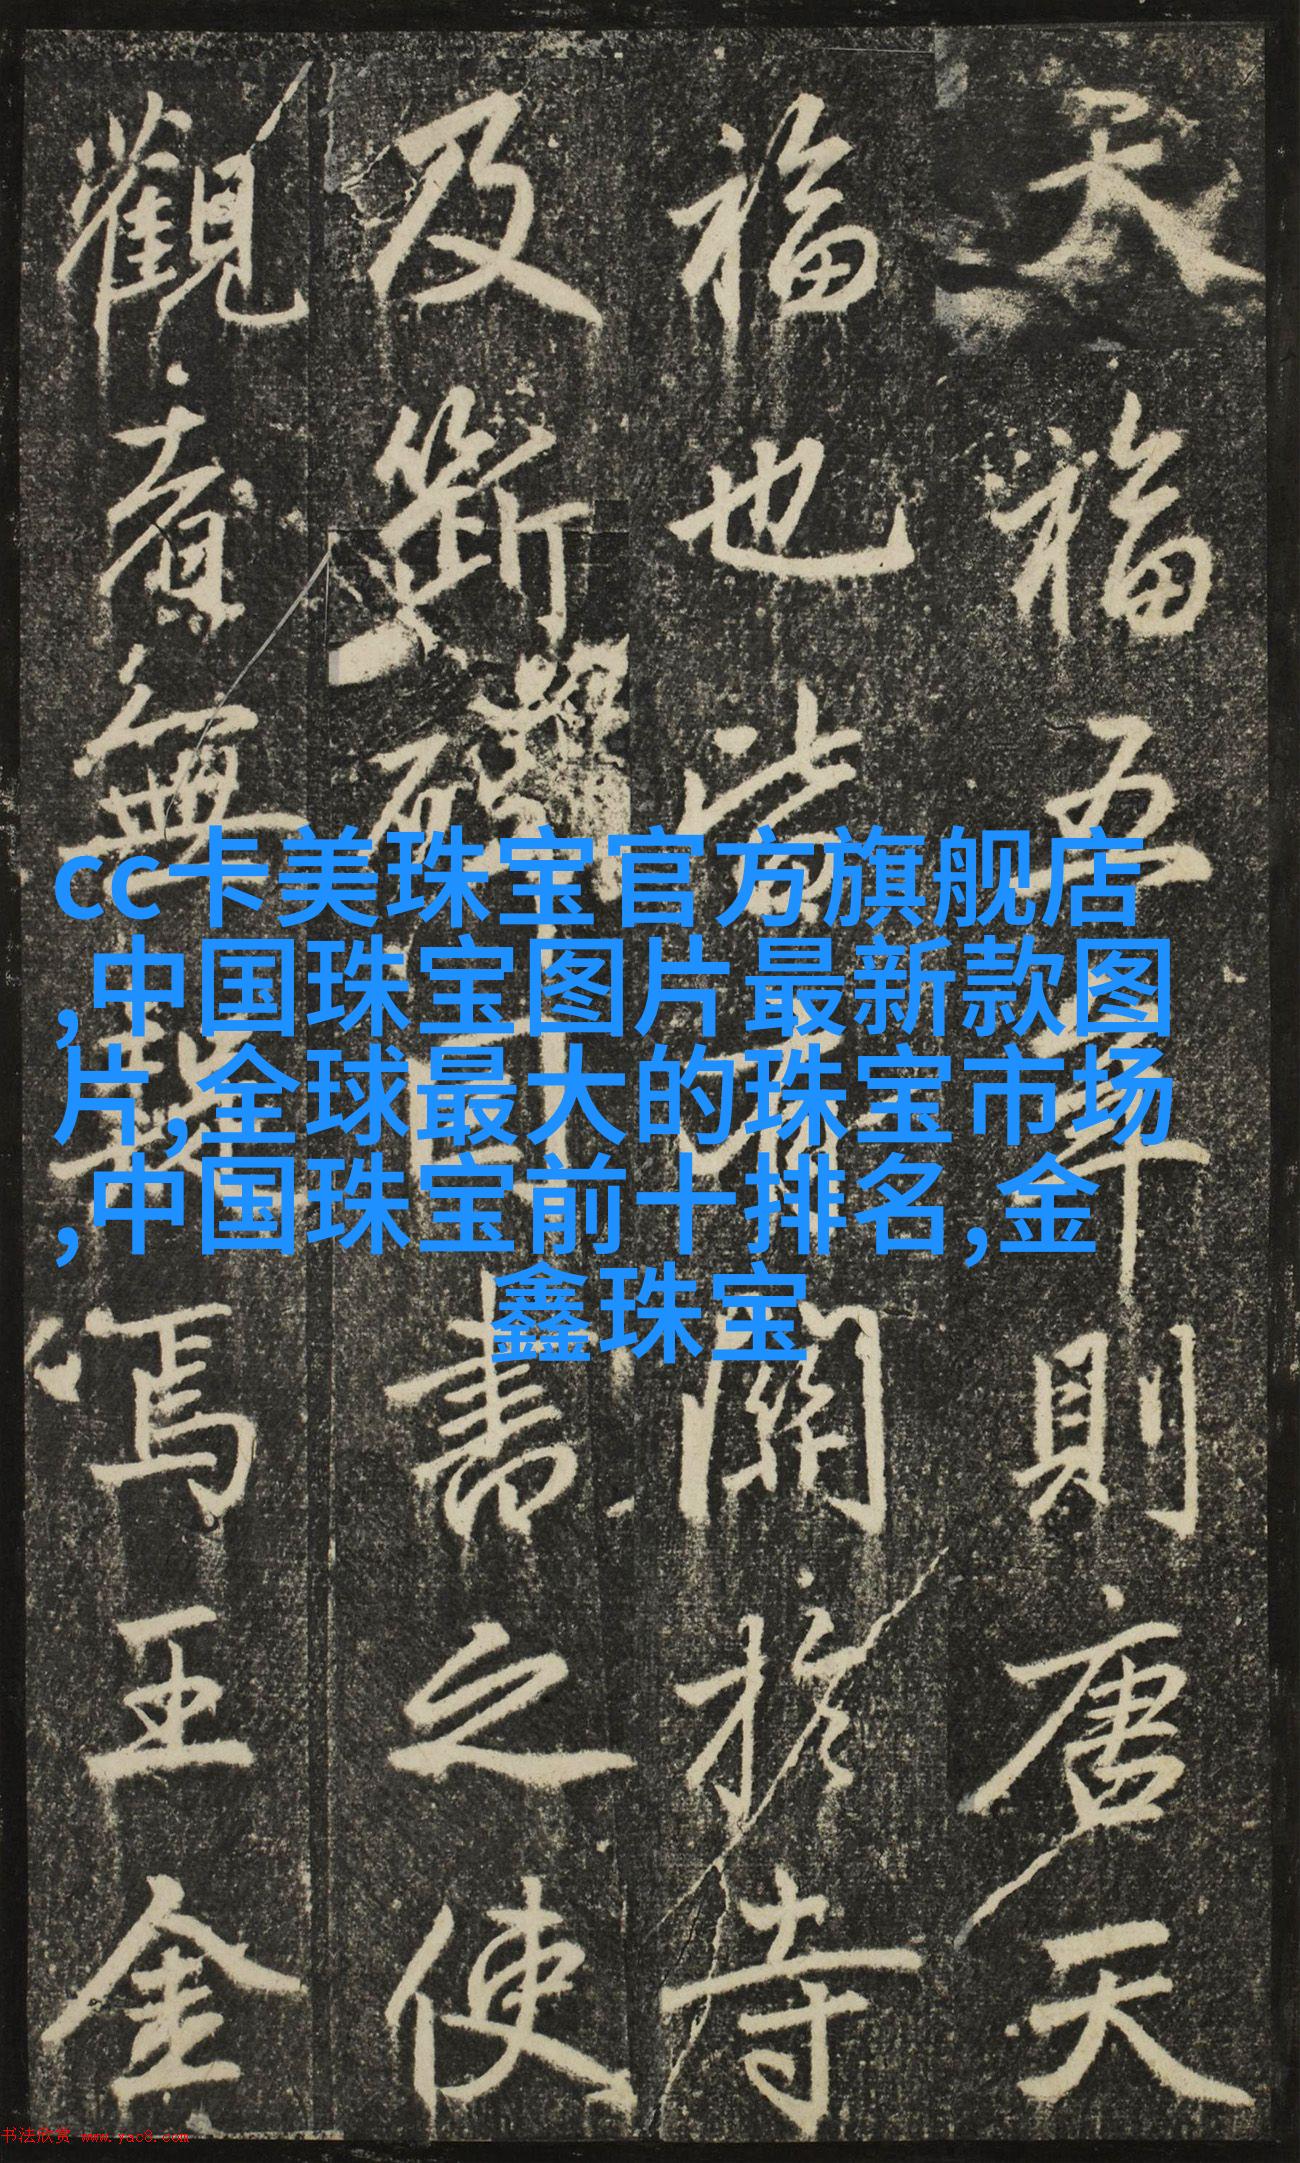 天福五年則唐天
福也關於寺
及斷碑書之使
觀無焉王金
cc卡美珠宝官方旗舰店
,中国珠宝图片最新款图
片,全球最大的珠宝市场
,中国珠宝前十排名,金
鑫珠宝
书法欣赏 www.yac8.com